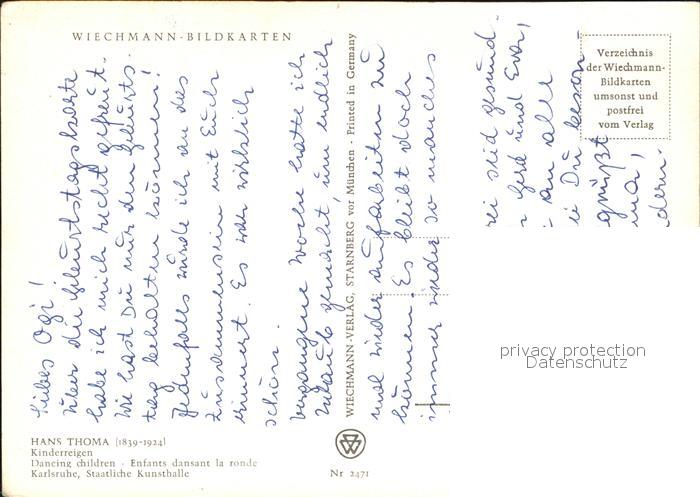 WIECHMANN-BILDKARTEN
Liebes Ogi!
Über die Geburtstagskarte
habe ich mich recht gefreut.
Wie hast Du nur den Geburts-
tag behalten können!
Jedenfalls würde ich an das
Zusammensein mit Euch
erinnert. Es war wirklich
schön.
Vergangene Woche hatte ich
Urlaub gemacht, um endlich
mal wieder aufarbeiten zu
können. Es bleibt doch
immer wieder so manches
rei seid gesund.
Gerd und Ever,
an alle
Du beson-
grüßt
dern.
WIECHMANN-VERLAG, STARNBERG vor München · Printed in Germany
Verzeichnis
der Wiechmann-
Bildkarten
umsonst und
postfrei
vom Verlag
privacy protection
Datenschutz
HANS THOMA (1839-1924)
Kinderreigen
Dancing children · Enfants dansant la ronde
Karlsruhe, Staatliche Kunsthalle
Nr 2471